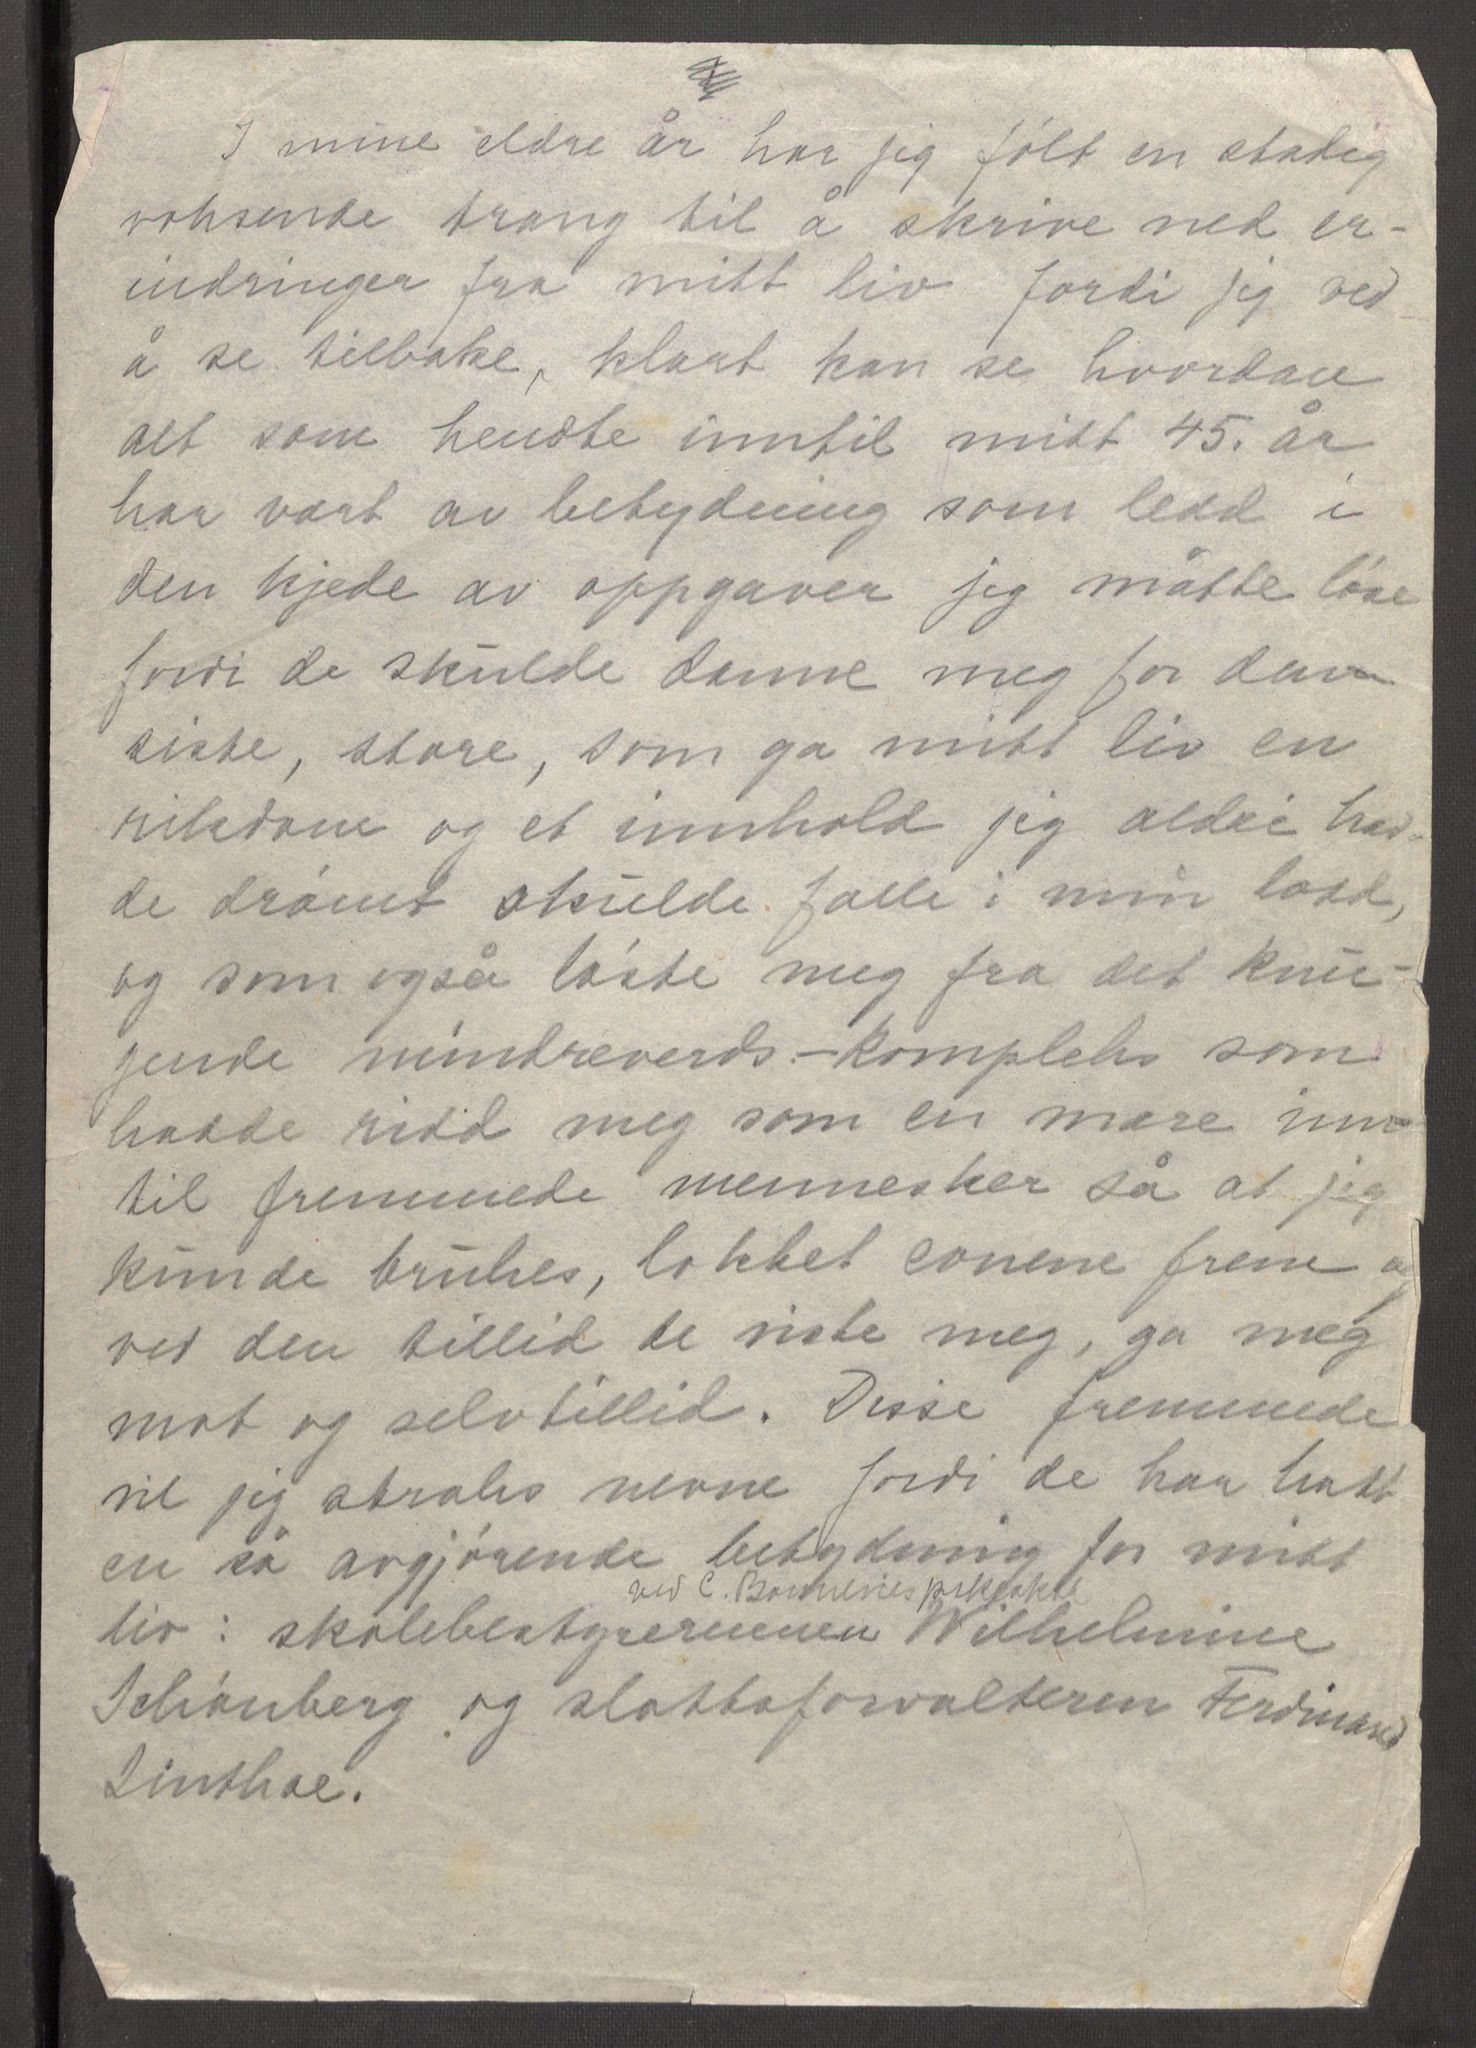 I mine eldre år har jeg følt en stadig
voksende trang til å skrive ned er-
indringer fra mitt liv fordi jeg ved
å se tilbake, klart kan se hvordan
alt som hendte inntil mitt 45. år
har vært av betydning som ledd i
den kjede av oppgaver jeg måtte løse
fordi de skulde danne meg for den
siste, store, som ga mitt liv en
rikdom og et innhold jeg aldri had-
de drømt skulde falle i min lodd,
og som også løste meg fra det knu-
gende mindreverds-kompleks som
hadde ridd meg som en mare inn-
til fremmede mennesker så at jeg
kunde brukes, lokket evnene frem og
ved den tillid de viste meg, ga meg
mot og selvtillid. Disse fremmede
vil jeg straks nevne fordi de har hatt
en så avgjørende betydning for mitt
ved C. Bonnevies
liv: skolebestyrerinnen Wilhelmine
Schønberg og slottsforvalteren Ferdinand
Linthoe.